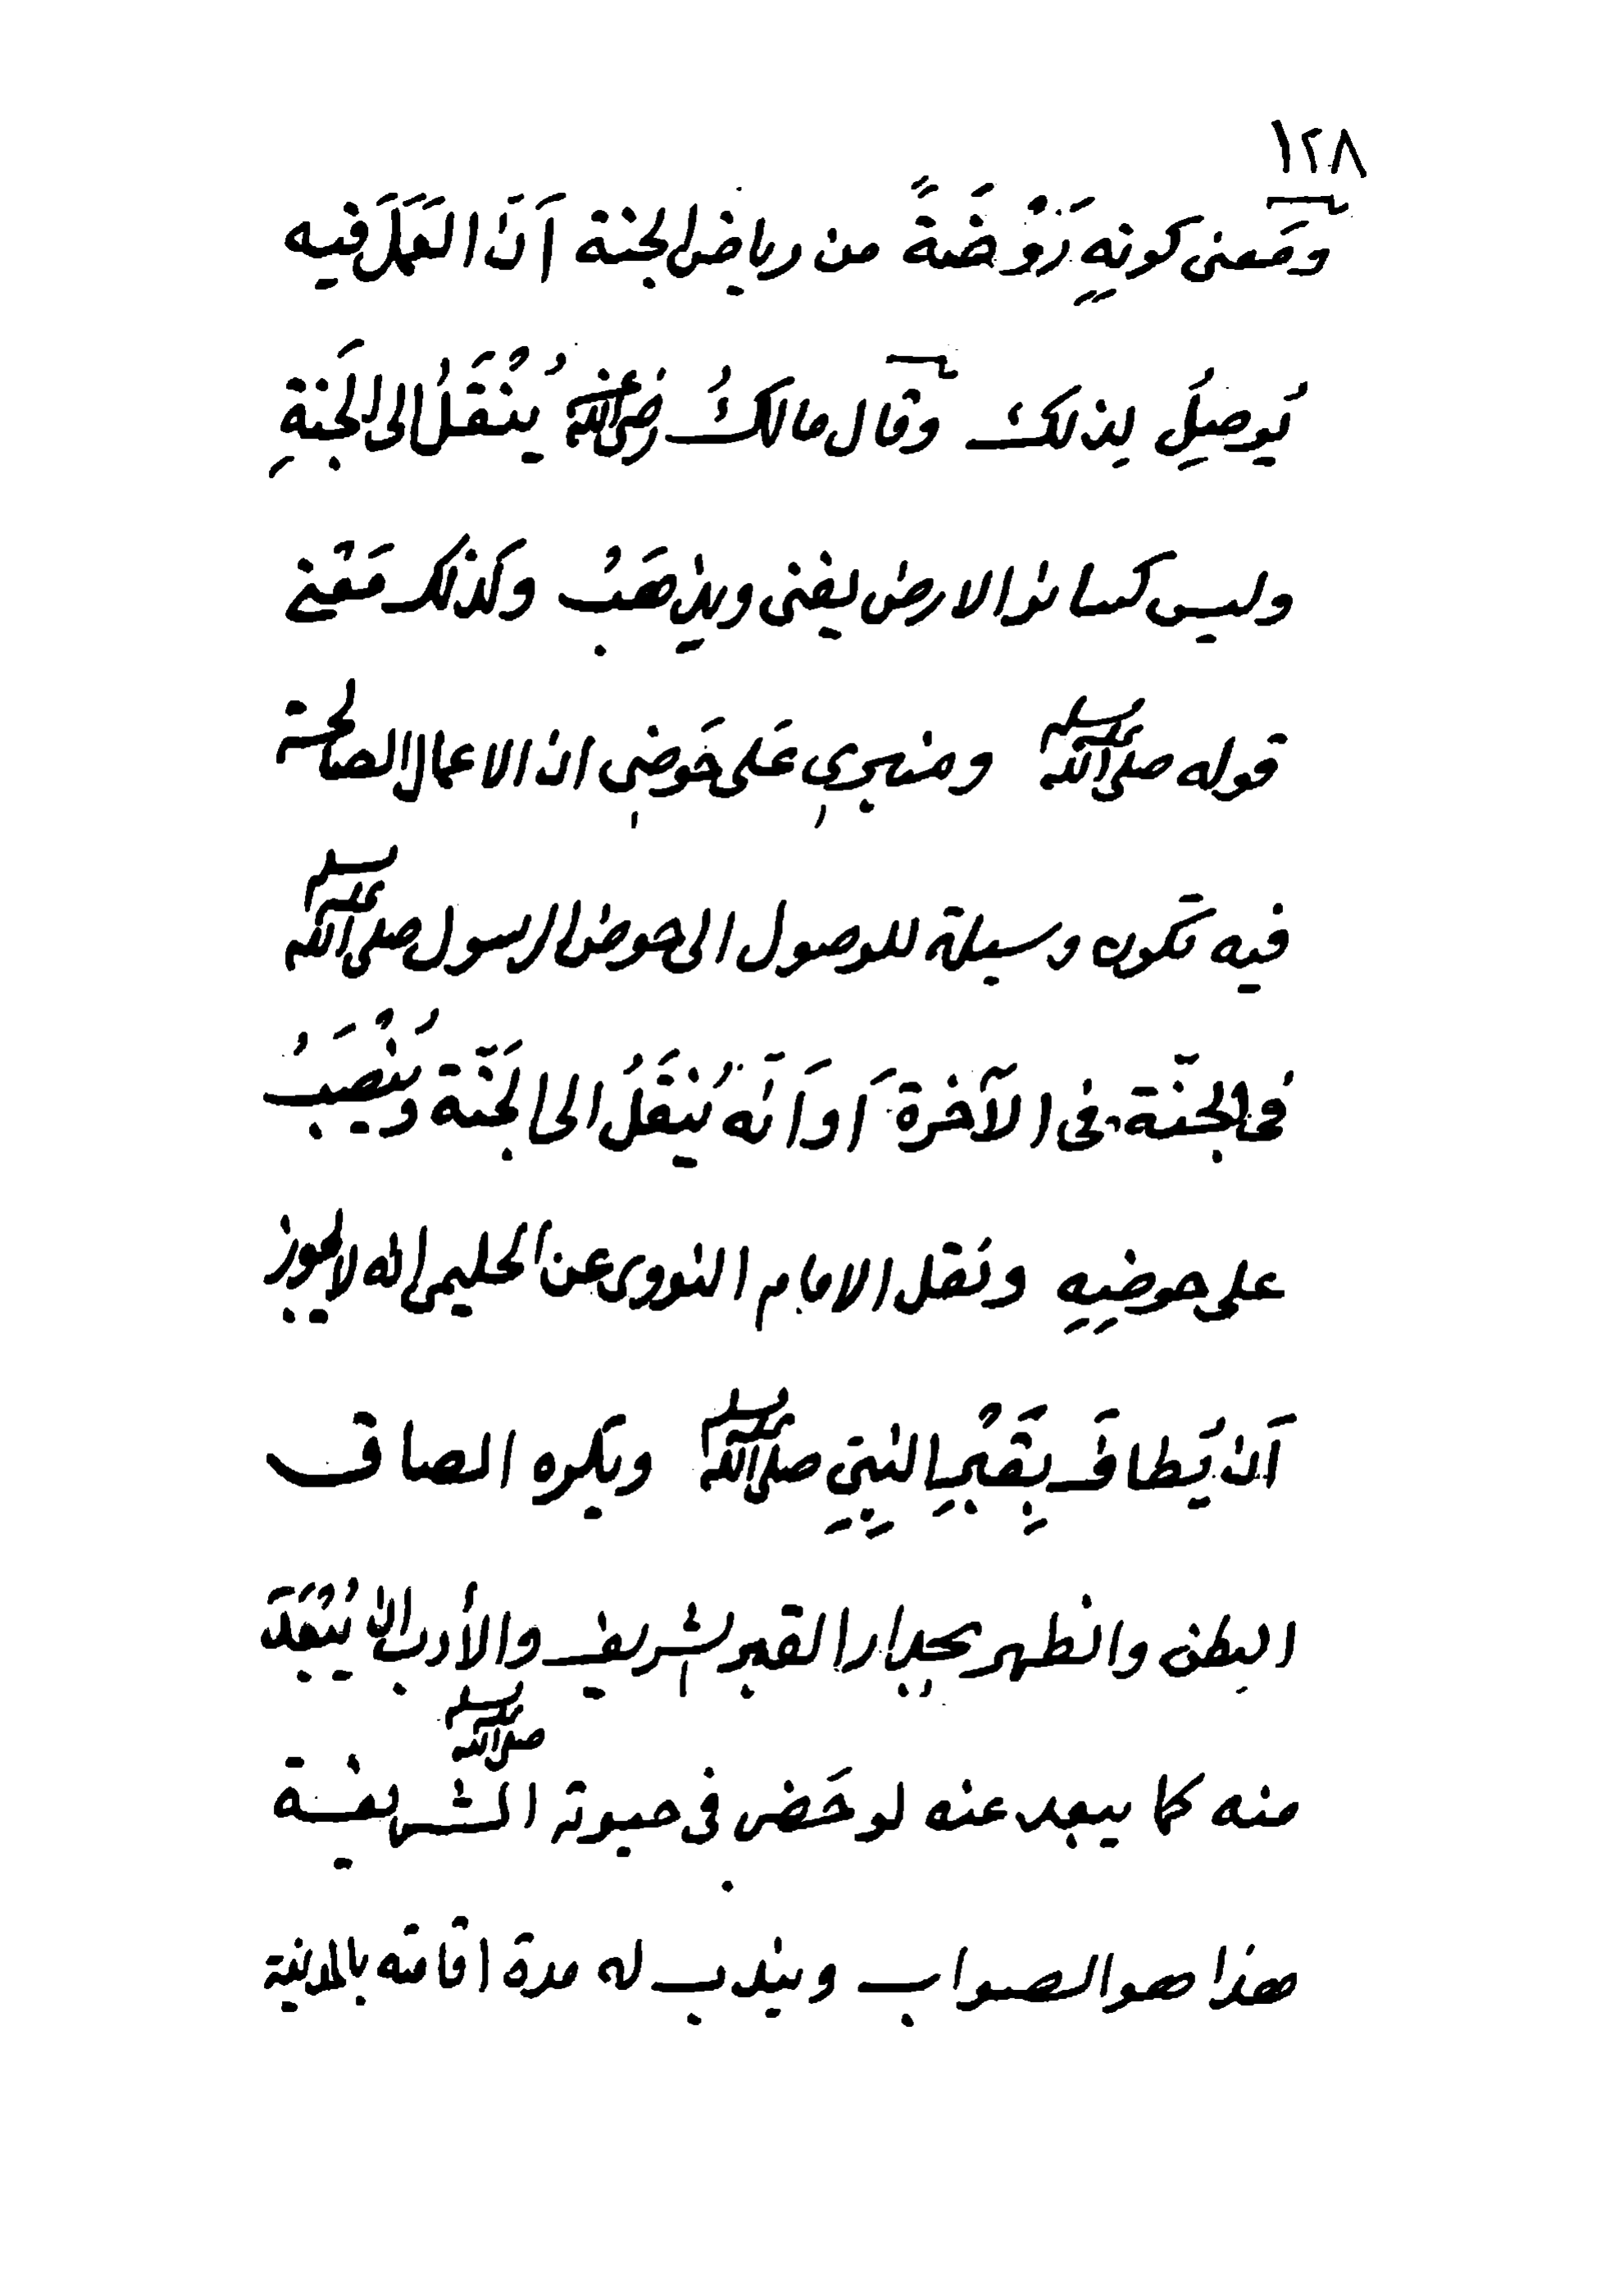 ١٢٨
ومَعنى كونِهِ رَوْضَةً من رياض الجنة أَنَّ العَمَلَ فيه
يُوصِلُ لِذلك وقال مالكُ رضى الله عنه يُنْقَلُ الى الجَنةِ
وليس كسائر الارض يفنى ويذهَبُ وكَذلك مَعْنى
قوله صلى الله عليه وسلم ومنبرىِ عَلى حَوضِى ان الاعمال الصالحة
فيه تكون وسيلة للوصول الى حوض الرسول صلى الله عليه وسلم
فى الجنّة فى الآخرة أَو أَنّه يُنقَلُ الى الجَنّة ويُنْصَبُ
على حوضِهِ ونَقل الامام النووى عن الحليمى انه لا يجوز
أَن يُطافَ بِقَبْرِ النبِيِّ صلى الله عليه وسلم ويكره الصاق
البطن والظهر بجدار القبر الشريف والأدب ان يُبْعَدَ
منه كما يبعد عنه لو حَضر فى حيوته الشريفة صلى الله عليه وسلم
هذا هو الصواب ويندب له مدة اقامته بالمدينة